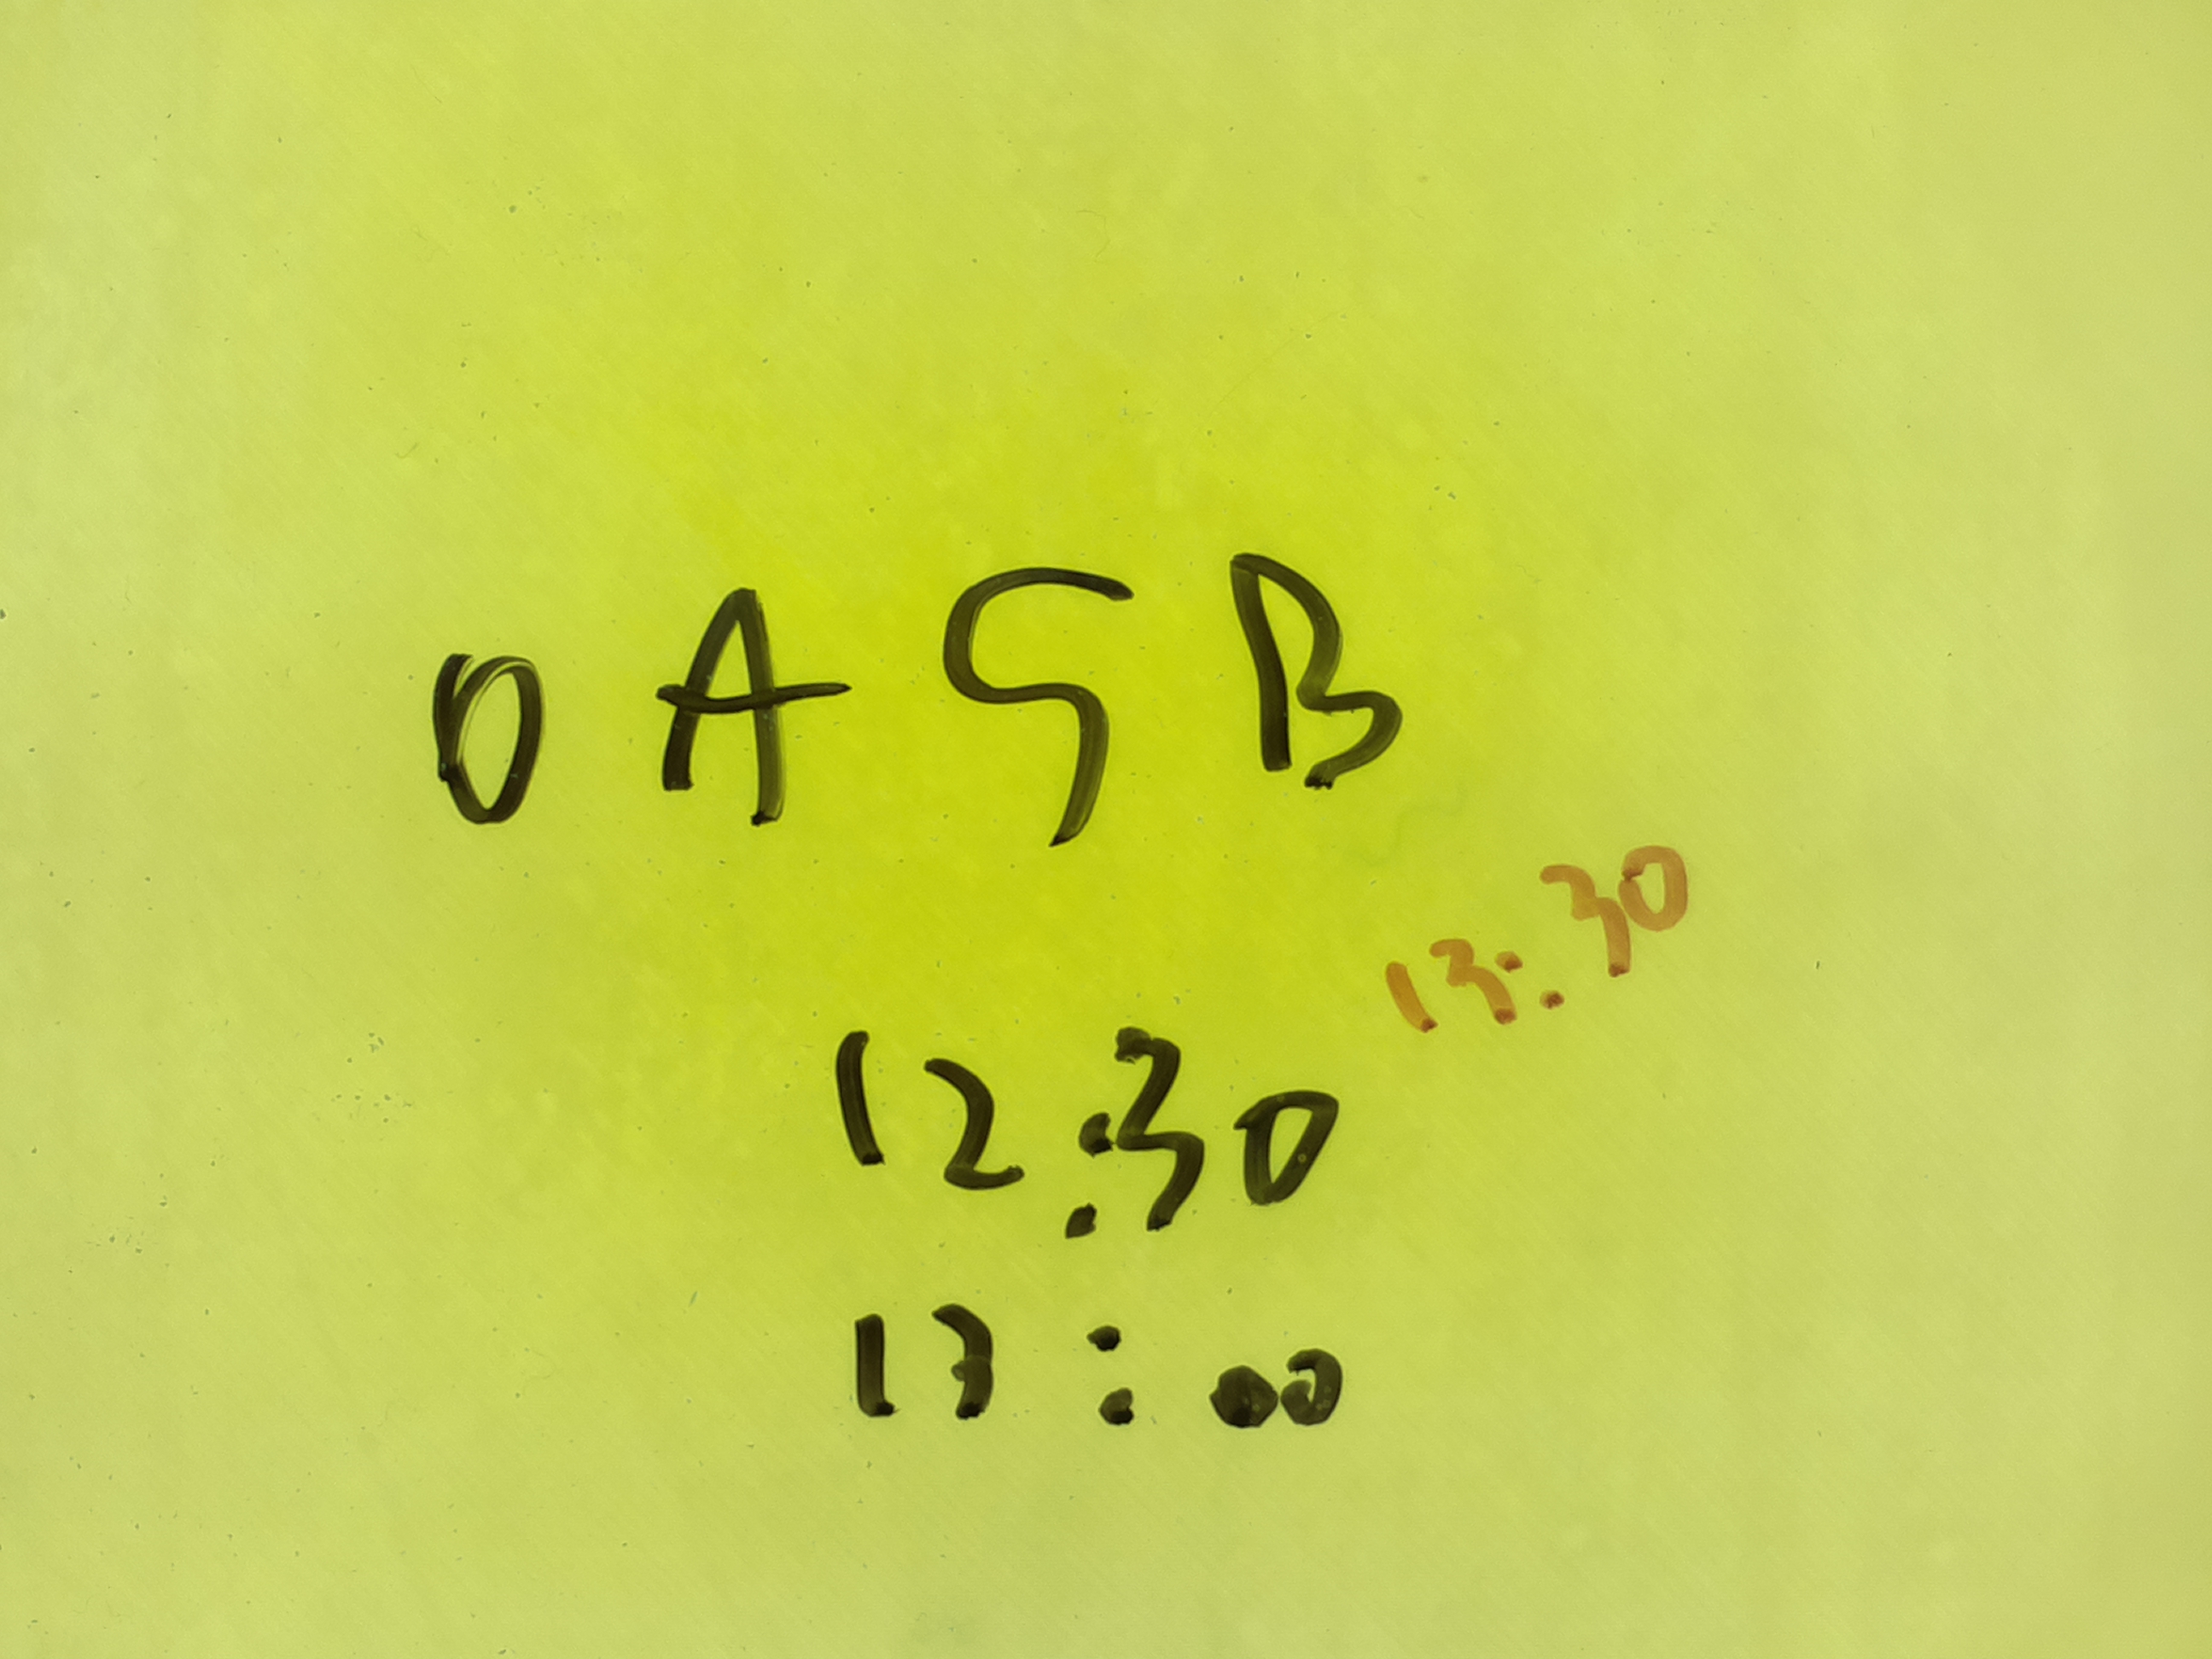 0 A 5 B
13:30
12:30
13:00